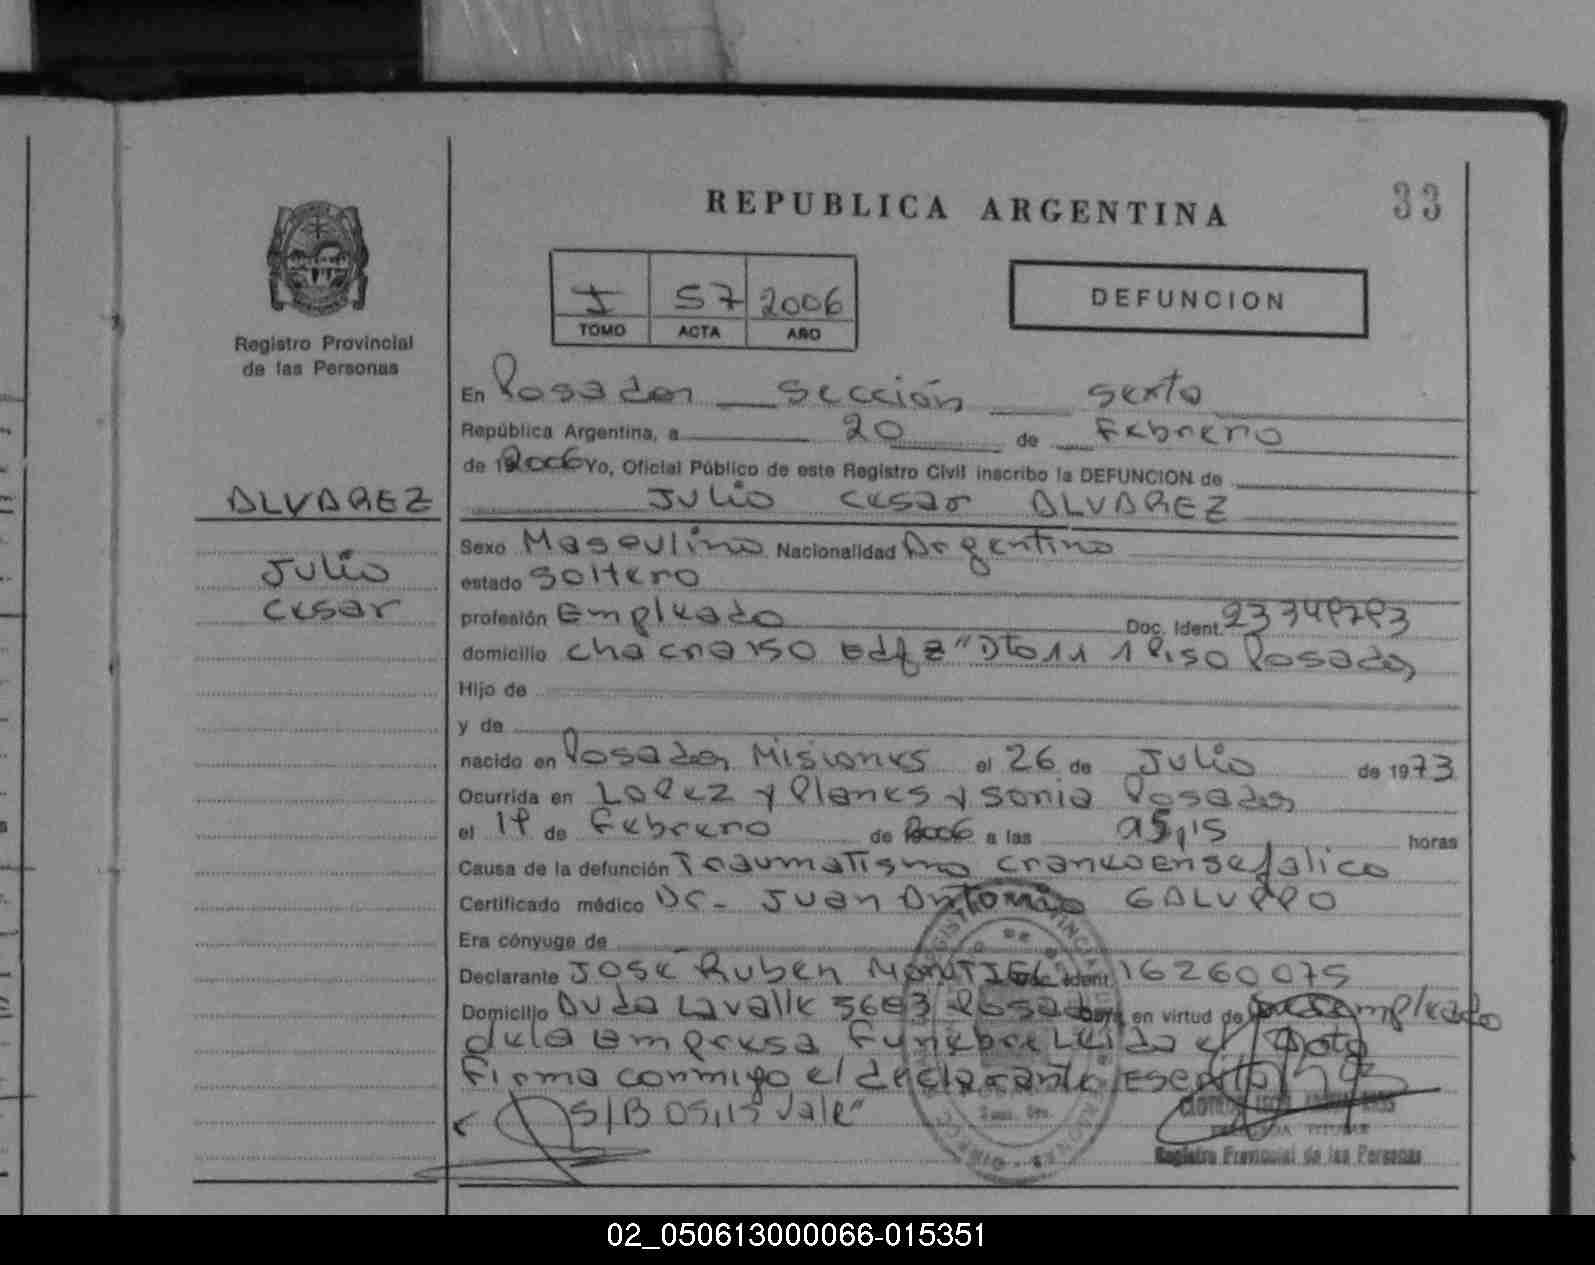 REPUBLICA ARGENTINA
33
I 57 2006
TOMO ACTA AÑO
DEFUNCION
Registro Provincial
de las Personas
En Posadas sección sexta
República Argentina, a 20 de Febrero
de 2006 Yo, Oficial Público de este Registro Civil inscribo la DEFUNCION de
ALVAREZ
Julio
Cesar
Julio Cesar ALVAREZ
Sexo Masculino Nacionalidad Argentino
estado soltero
profesión Empleado Doc. Ident.
domicilio chacra 150 Edf 2 "Dto 11 1 Piso Posadas
Hijo de
y de
nacido en Posadas Misiones el 26 de Julio de 1973
Ocurrida en Lopez y Planes y Sonia Posadas
el de Febrero de 2006 a las horas
Causa de la defunción Traumatismo craneoensefalico
Certificado médico Dr. Juan Antonio GALUPPO
Era cónyuge de
Declarante José Ruben MONTIEL Doc. Ident. 16260075
Domicilio Lavalle 5683 Posadas en virtud de empleado
de la Empresa Funebre Leida el Acta
Firma conmigo el declarante
S/B 05,15 Vale"
Registro Provincial de las Personas
02_050613000066-015351